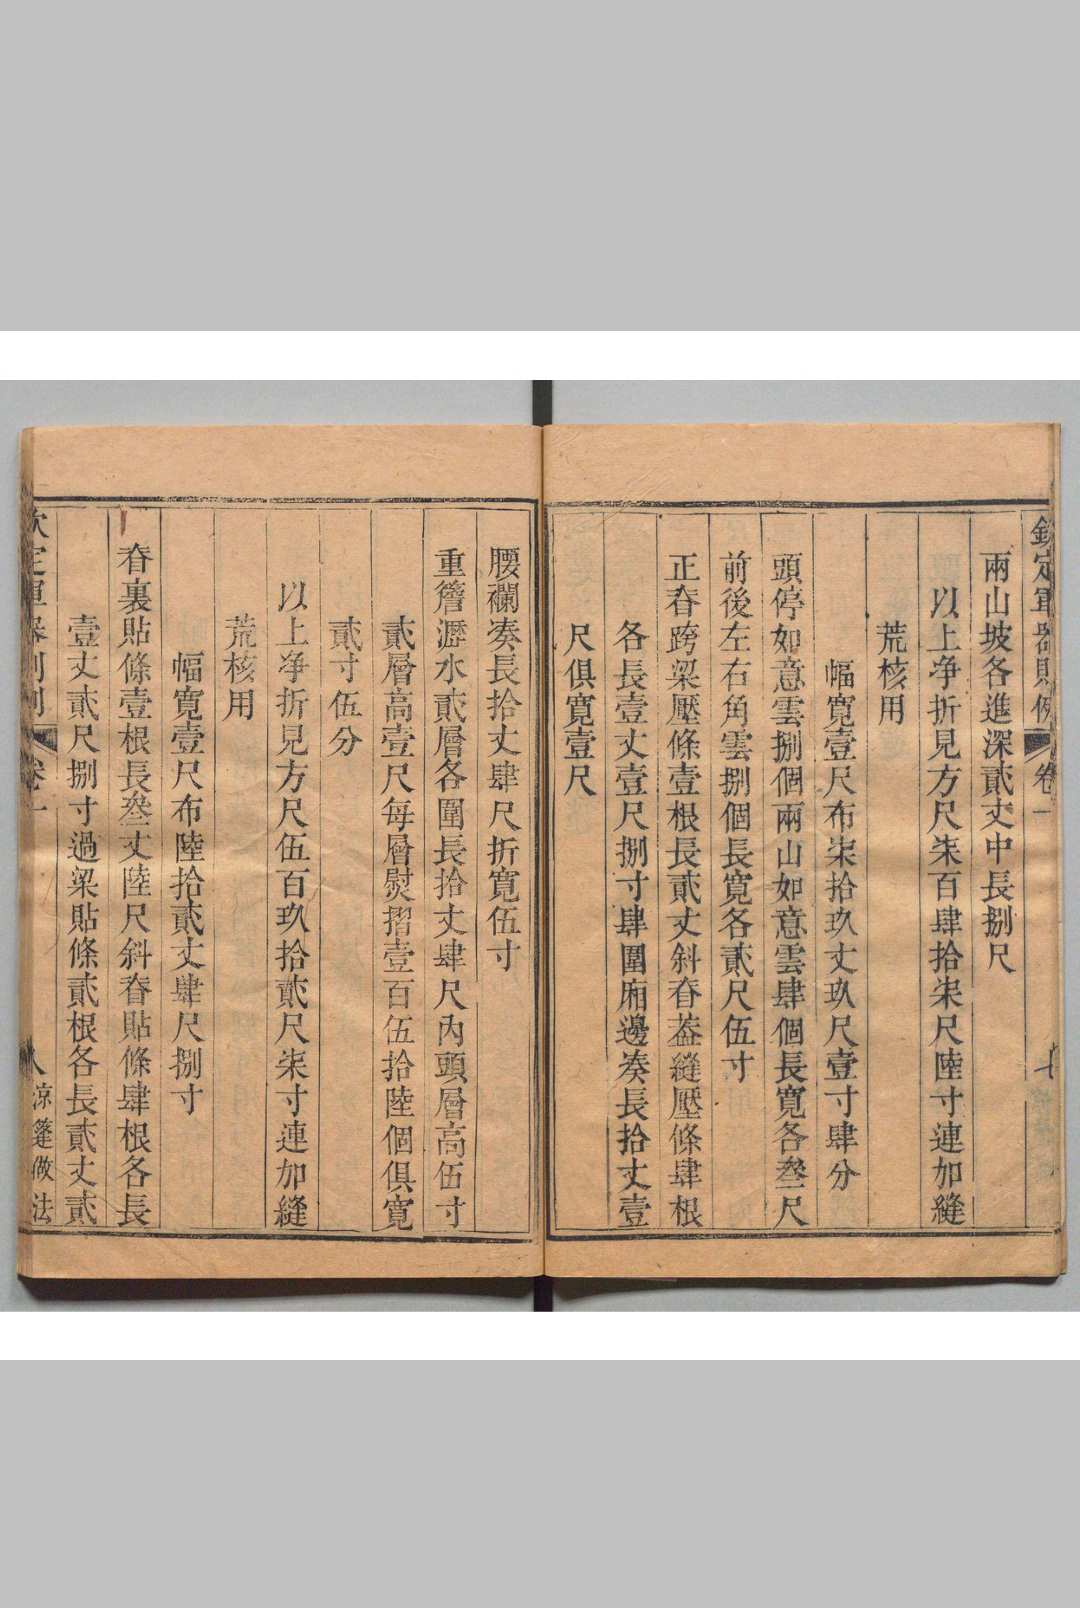 欽定軍器則例 卷一 七
兩山坡各進深貳丈中長捌尺
以上净折見方尺柒百肆拾柒尺陸寸連加縫
荒核用
幅寬壹尺布柒拾玖丈玖尺壹寸肆分
頭停如意雲捌個兩山如意雲肆個長寬各叄尺
前後左右角雲捌個長寬各貳尺伍寸
正脊跨梁壓條壹根長貳丈斜脊葢縫壓條肆根
各長壹丈壹尺捌寸肆圍廂邊凑長拾丈壹
尺俱寬壹尺
腰襴凑長拾丈肆尺折寬伍寸
重簷瀝水貳層各圍長拾丈肆尺內頭層高伍寸
貳層高壹尺每層熨摺壹百伍拾陸個俱寬
貳寸伍分
以上净折見方尺伍百玖拾貳尺柒寸連加縫
荒核用
幅寬壹尺布陸拾貳丈肆尺捌寸
脊裏貼條壹根長叄丈陸尺斜脊貼條肆根各長
壹丈貳尺捌寸過梁貼條貳根各長貳丈貳
欽定軍器則例 卷一 八 凉篷做法